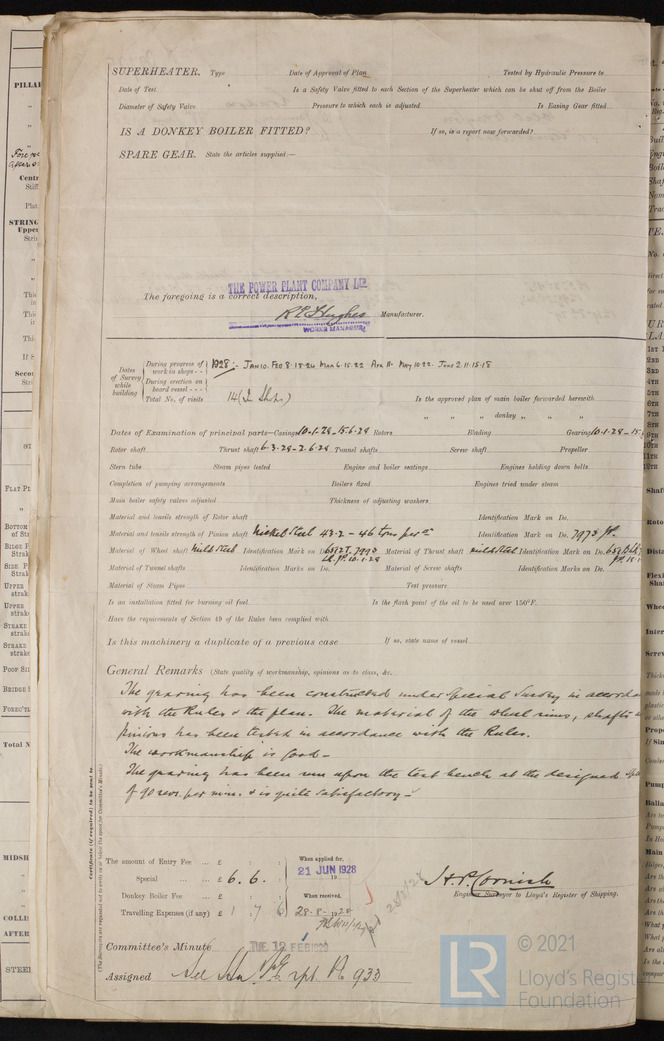 SUPERHEATER. Type Date of Approval of Plan Tested by Hydraulic Pressure to
Date of Test Is a Safety Valve fitted to each Section of the Superheater which can be shut off from the Boiler
Diameter of Safety Valve Pressure to which each is adjusted Is Easing Gear fitted
IS A DONKEY BOILER FITTED? If so, is a report now forwarded?
SPARE GEAR. State the articles supplied:—
THE POWER PLANT COMPANY LTD.
The foregoing is a correct description,
R.P. Hughes Manufacturer.
WORKS MANAGER
Dates of Survey while building
During progress of work in shops - - 1928:- JAN 10. FEB 8.15.24 MAR 6.15.22 APR 11. MAY 10.22. JUNE 2.11.15.18
During erection on board vessel - - -
Total No. of visits 14 (In Shops) Is the approved plan of main boiler forwarded herewith
" " " donkey " " "
Dates of Examination of principal parts—Casings 10-1-28-15.6.28 Rotors Blading Gearing 10-1-28-15.
Rotor shaft Thrust shaft 6-3-28-2.6.28 Tunnel shafts Screw shaft Propeller
Stern tube Steam pipes tested Engine and boiler seatings Engines holding down bolts
Completion of pumping arrangements Boilers fixed Engines tried under steam
Main boiler safety valves adjusted Thickness of adjusting washers
Material and tensile strength of Rotor shaft Identification Mark on Do.
Material and tensile strength of Pinion shaft Nickel Steel 43.2 - 46 tons per □" Identification Mark on Do. 7973 JP.
Material of Wheel shaft Mild Steel Identification Mark on Do. Material of Thrust shaft Mild Steel Identification Mark on Do.
Material of Tunnel shafts Identification Marks on Do. Material of Screw shafts Identification Marks on Do.
Material of Steam Pipes Test pressure
Is an installation fitted for burning oil fuel Is the flash point of the oil to be used over 150°F.
Have the requirements of Section 49 of the Rules been complied with
Is this machinery a duplicate of a previous case If so, state name of vessel
General Remarks (State quality of workmanship, opinions as to class, &c.
The gearing has been constructed under Special Survey in accorda
with the Rules & the plan. The material of the wheel rims, shafts &
pinions has been tested in accordance with the Rules.
The workmanship is Good-
The gearing has been run upon the test bench at the designed
of 90 revs. per min. & is quite satisfactory-
Certificate (if required) to be sent to
(The Surveyors are requested not to write on or below the space for Committee's Minute.)
The amount of Entry Fee ... £ : : When applied for,
Special ... ... £ 6. 6. 21 JUN 1928
Donkey Boiler Fee ... £ : : When received,
Travelling Expenses (if any) £ 1 : 7 6 28-8-1928
28/8/28
H.P. Cornish
Engineer Surveyor to Lloyd's Register of Shipping.
Committee's Minute TUE. 12 FEB 1929
Assigned See rpt. 933
© 2021
LR Lloyd's Register
Foundation